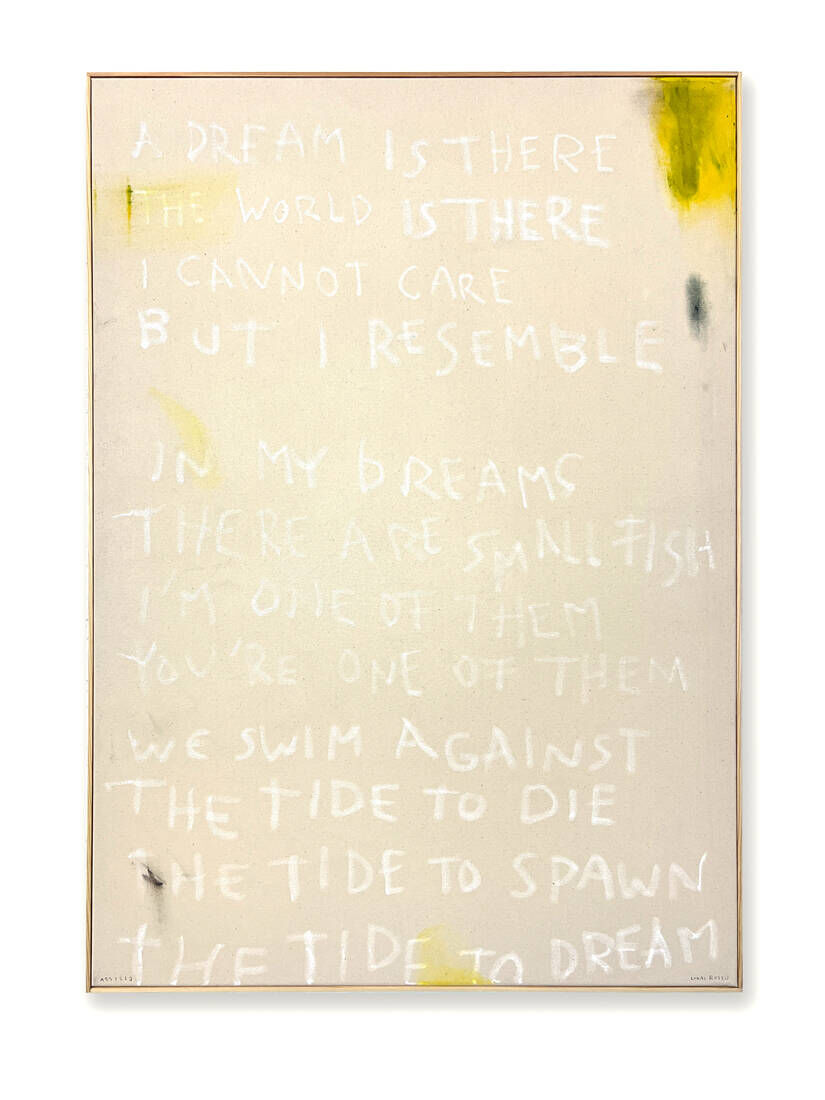 A DREAM IS THERE
THE WORLD IS THERE
I CANNOT CARE
BUT I RESEMBLE
IN MY DREAMS
THERE ARE SMALL FISH
I'M ONE OF THEM
YOU'RE ONE OF THEM
WE SWIM AGAINST
THE TIDE TO DIE
THE TIDE TO SPAWN
THE TIDE TO DREAM